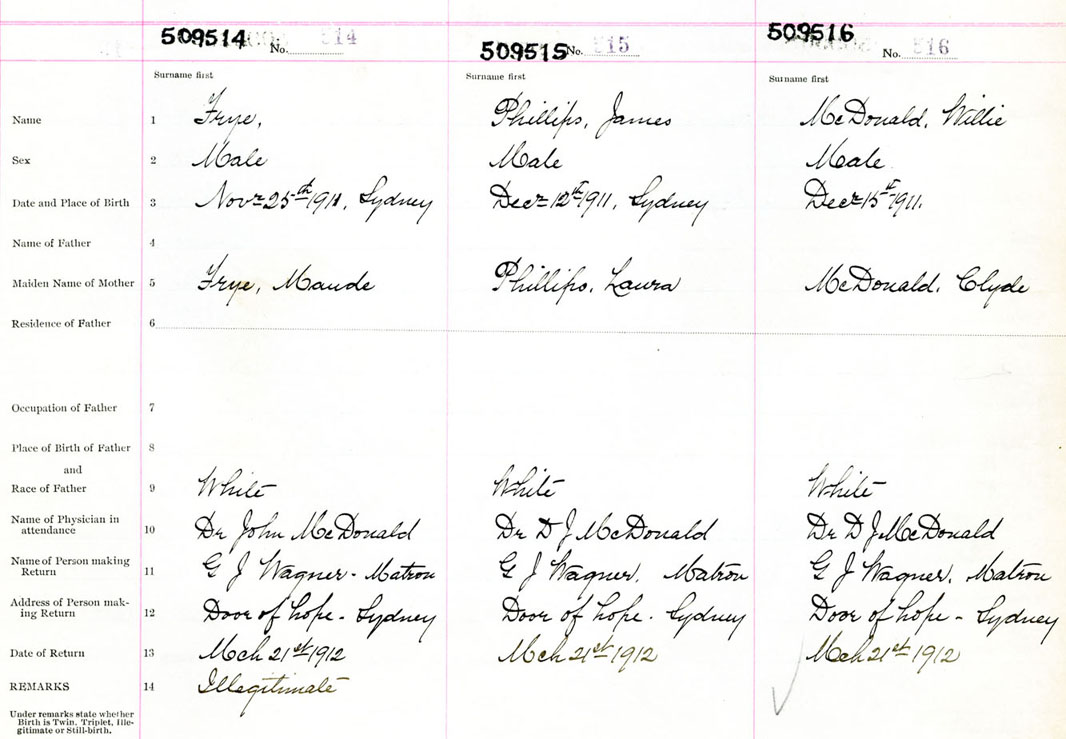 509514 No. 514
509515 No. 515
509516 No. 516
Surname first Surname first Surname first
Name 1 Frye, Phillips, James McDonald, Willie
Sex 2 Male Male Male
Date and Place of Birth 3 Novr 25th 1911, Sydney Decr 12th 1911, Sydney Decr 15th 1911.
Name of Father 4
Maiden Name of Mother 5 Frye, Maude Phillips, Laura McDonald, Clyde
Residence of Father 6
Occupation of Father 7
Place of Birth of Father 8
and
Race of Father 9 White White White
Name of Physician in
attendance 10 Dr John McDonald Dr D J McDonald Dr D J McDonald
Name of Person making
Return 11 G J Wagner - Matron G J Wagner, Matron G J Wagner, Matron
Address of Person mak-
ing Return 12 Door of hope - Sydney Door of hope - Sydney Door of hope - Sydney
Date of Return 13 Mch 21st 1912 Mch 21st 1912 Mch 21st 1912
REMARKS 14 Illegitimate
Under remarks state whether
Birth is Twin, Triplet, Ille-
gitimate or Still-birth.